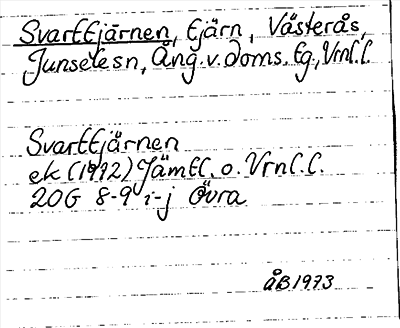 Svarttjärnen, tjärn, Västerås,
Junselesn, Ång. v. doms. tg, Vrnl.l.
Svarttjärnen
ek (1972) Jämtl. o. Vrnl.l.
20G 8-9 i-j Övra
åB 1973